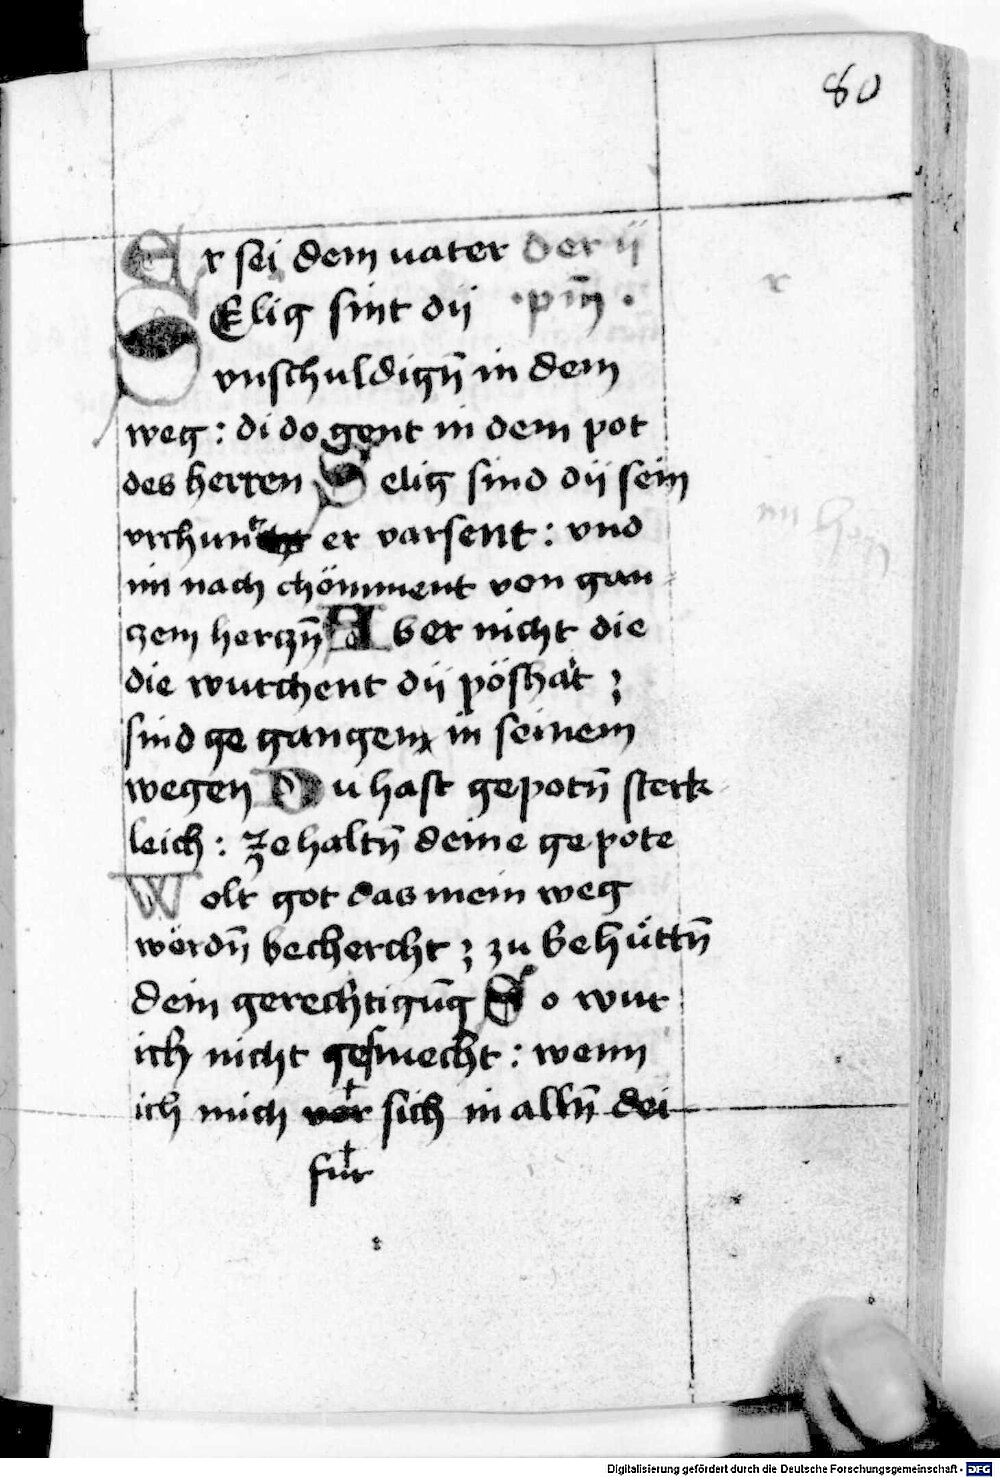 80
Er sei dem uater der ij
Selig sint dij ·pm̄·
vnschuldign̄ in dem
weg : di do gent in dem pot
des herren Selig sind dij sein
er varsent : vnd
im nach chömment von gan⸗
czem herczn̄ Aber nicht die
die wurchent dij pöshat ;
sind ge gangen in seinem
wegen Du hast gepotn̄ sterk⸗
leich : ze haltn̄ deine ge pote
Wolt got das mein weg
wördn̄ bechercht ; zu behüttn̄
dein gerechtigūg So wur
ich nicht gesmecht : wenn
ich mich ver sich in alln̄ dei
für
Digitalisierung gefördert durch die Deutsche Forschungsgemeinschaft - DFG